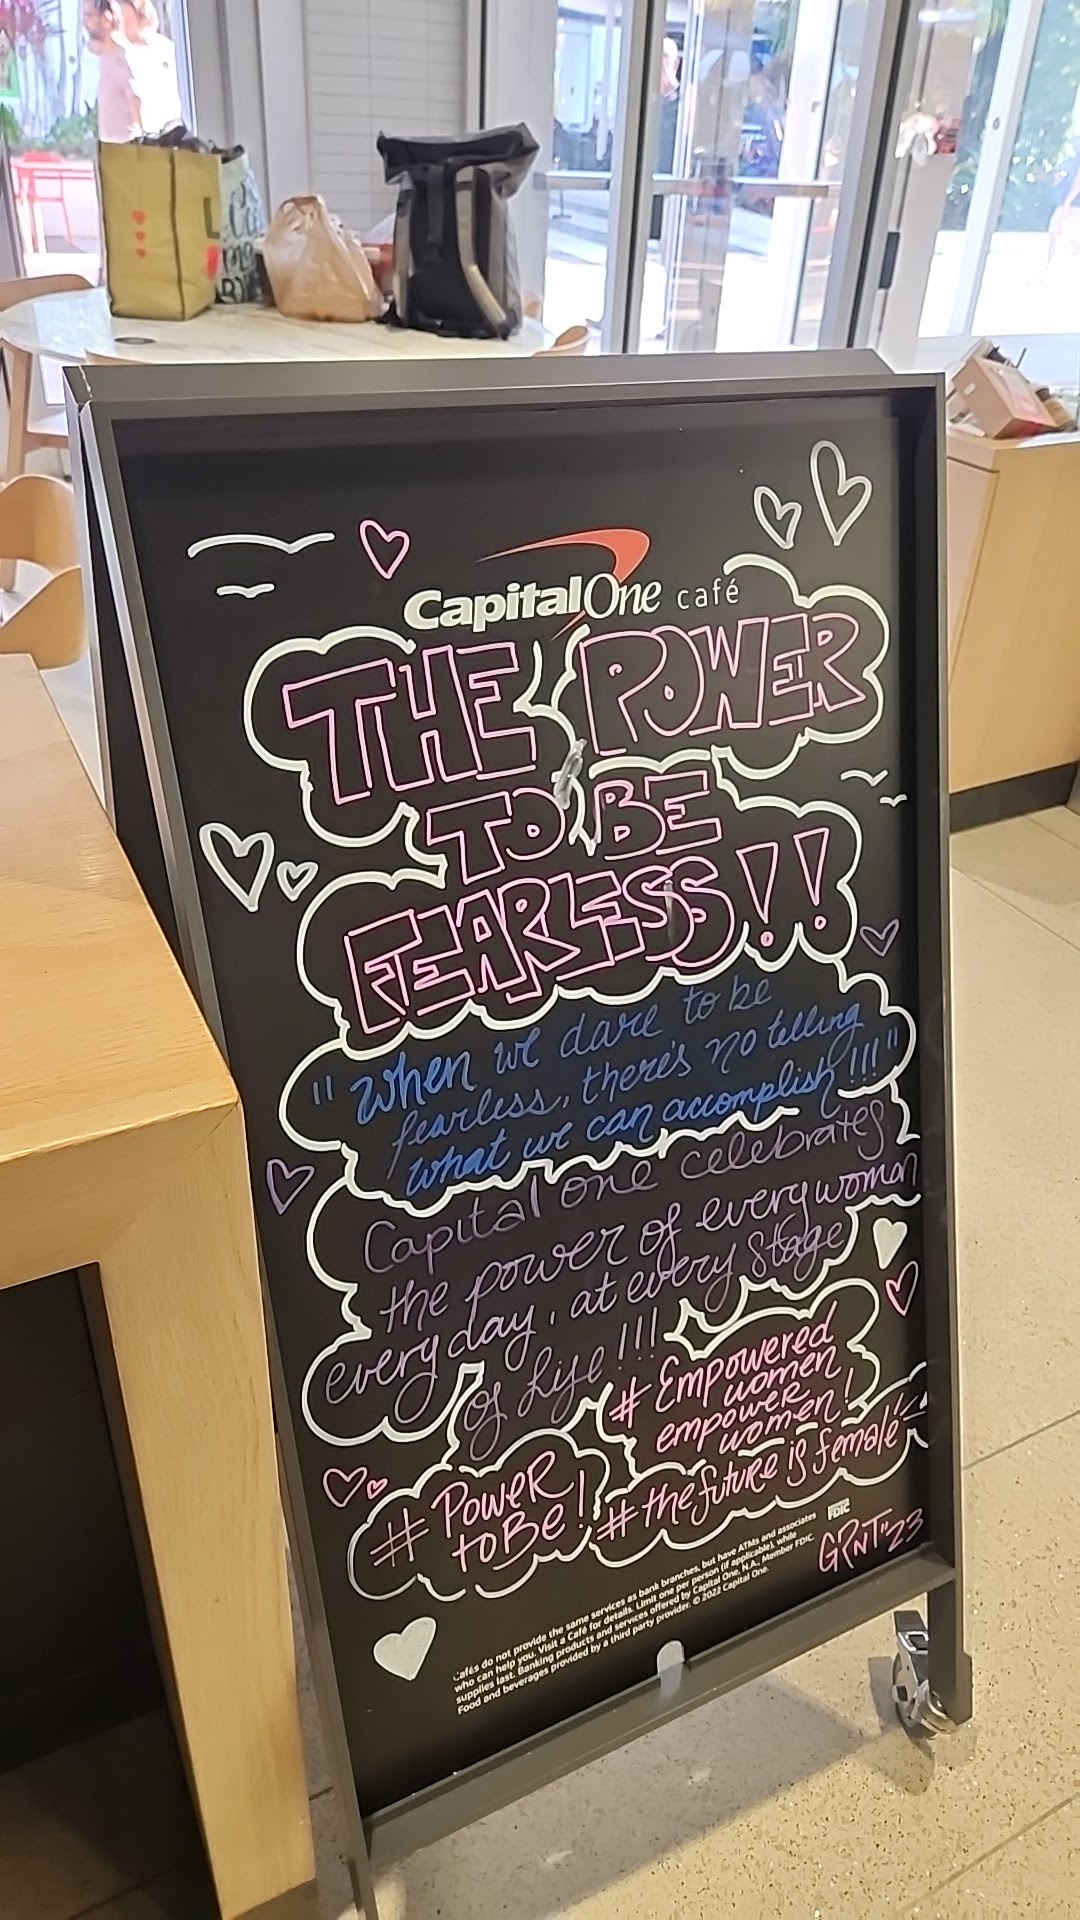 CapitalOne café
THE POWER
TO BE
FEARLESS!!
"When we dare to be
fearless, there's no telling
what we can accomplish!!!"
Capital one celebrates
the power of every woman
every day, at every stage
of life!!!
# Empowered
women
empower
women!
# Power
toBe!
# the future is female!
GPNT"23
FDIC
Cafés do not provide the same services as bank branches, but have ATMs and associates
who can help you. Visit a Café for details. Limit one per person (if applicable), while
supplies last. Banking products and services offered by Capital One, N.A., Member FDIC.
Food and beverages provided by a third party provider. © 2022 Capital One.